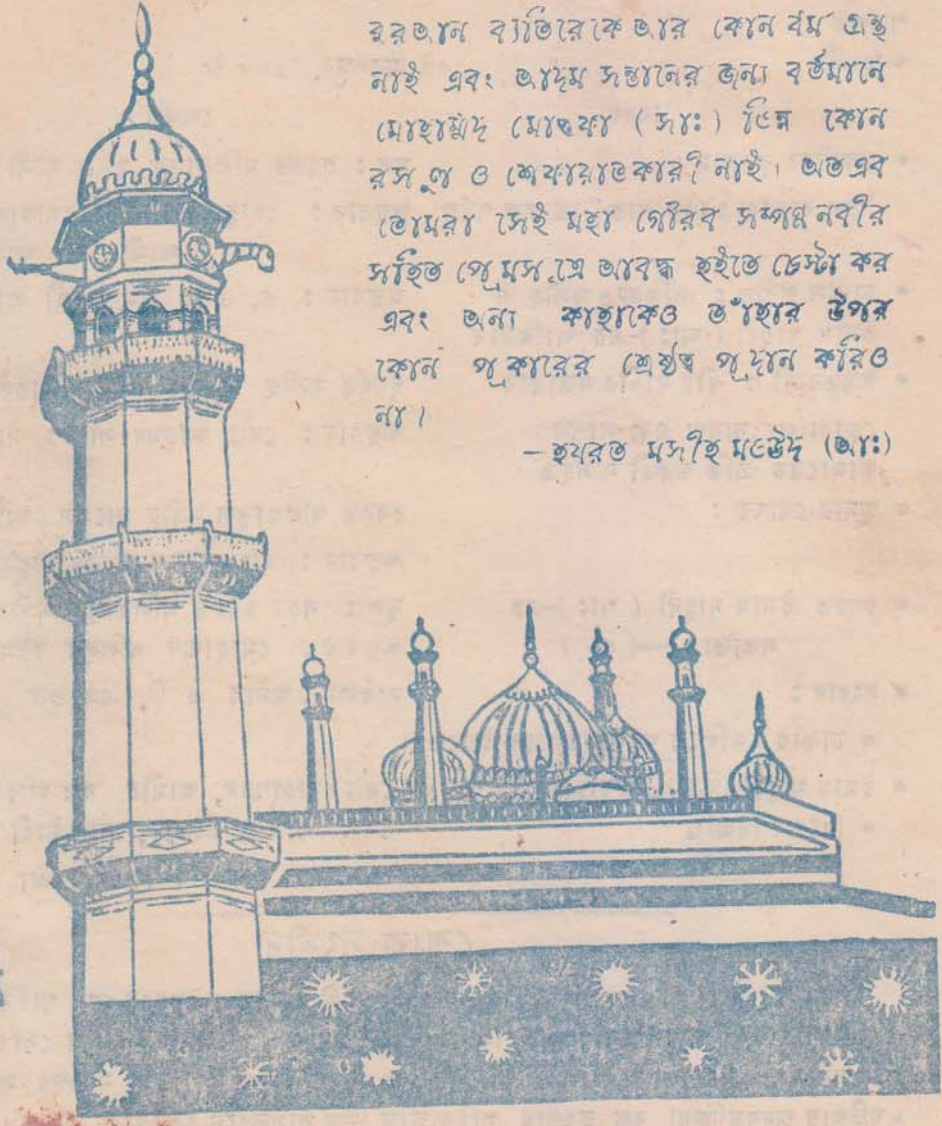 কুরআন ব্যতিরেকে আর কোন ধর্ম গ্রন্থ
নাই এবং আদম সন্তানের জন্য বর্তমানে
মোহাম্মদ মোস্তফা (সাঃ) ভিন্ন কোন
রসূল ও শেফায়াতকারী নাই। অতএব
তোমরা সেই মহা গৌরব সম্পন্ন নবীর
সহিত প্রেমসূত্রে আবদ্ধ হইতে চেস্টা কর
এবং অন্য কাহাকেও তাঁহার উপর
কোন প্রকারের শ্রেষ্ঠত্ব প্রদান করিও
না।
–হযরত মসীহ মওউদ (আঃ)